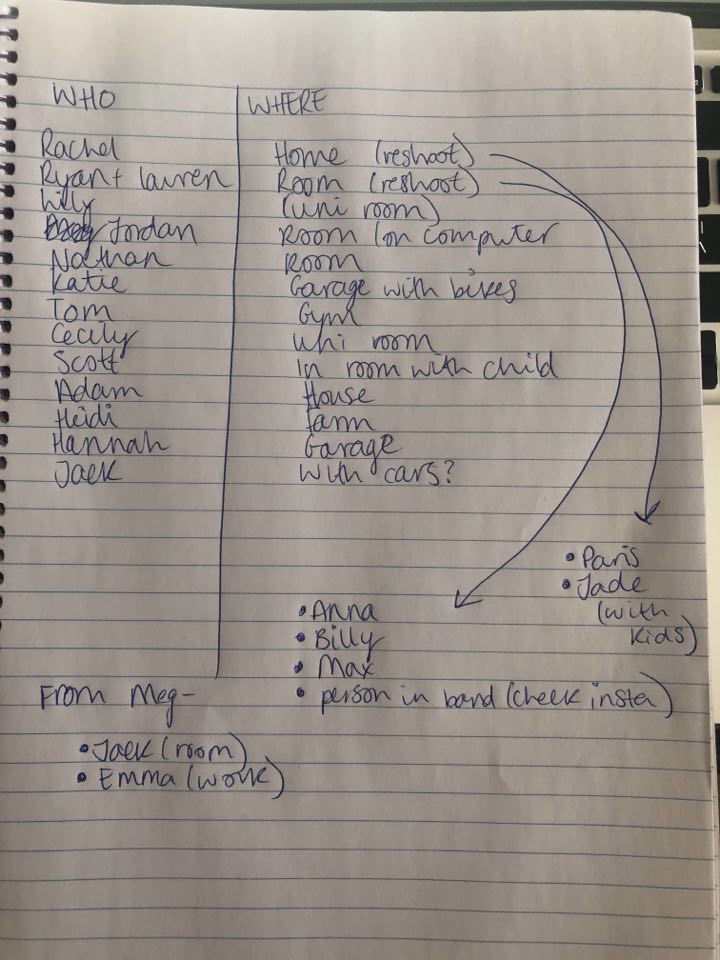 WHO WHERE
Rachel Home (reshoot)
Ryan + lauren Room (reshoot)
Lilly (uni room)
Jordan Room (on computer
Nathan Room
Katie Garage with bikes
Tom Gym
Cecily Uni room
Scott In room with child
Adam House
Heidi Farm
Hannah Garage
Jack With cars?
• Paris
• Jade
(with
kids)
• Anna
• Billy
• Max
• person in band (check insta)
From Meg-
• Jack (room)
• Emma (work)